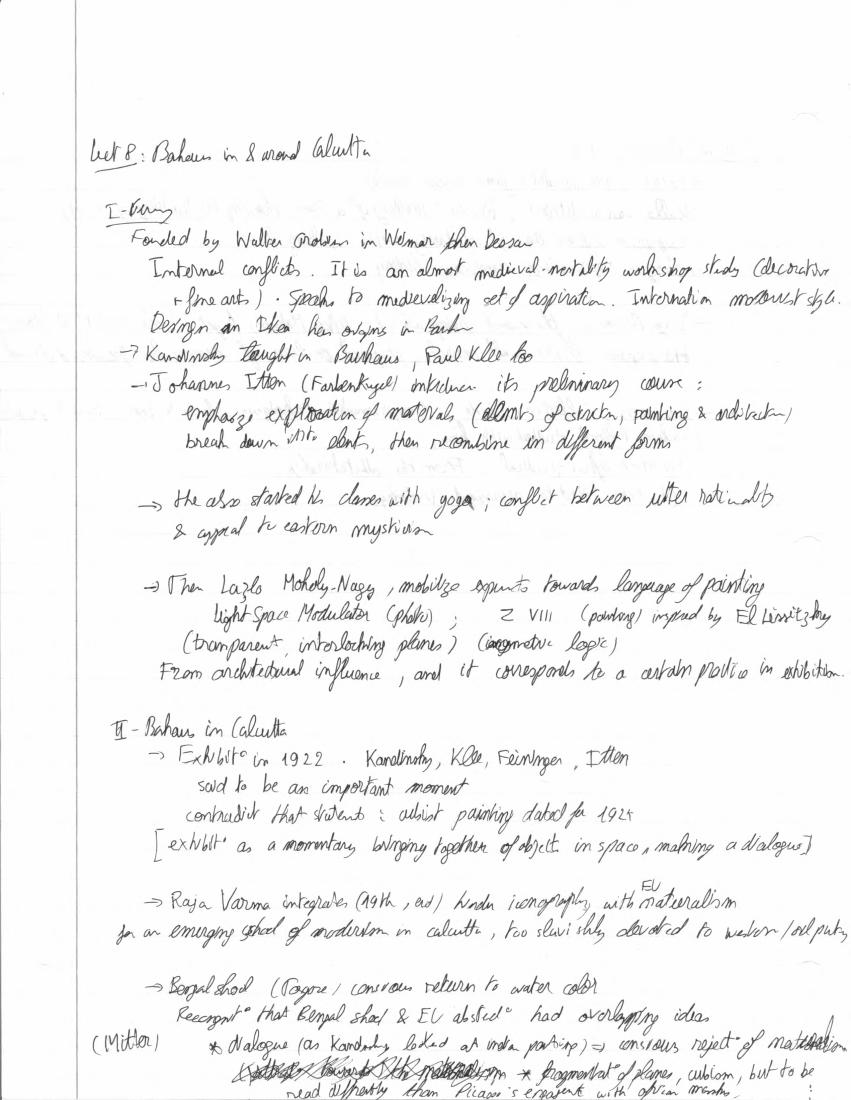 Lect 8 : Bahaus in & around Calcutta
I - Germany
Founded by Walter Gropius in Weimar then Dessau
Internal conflicts. It is an almost medieval-mentality workshop study (decorative
+ fine arts). Speaks to medievalizing set of aspiration. Internation modernist style.
Design in Ikea has origins in Bauh
→ Kandinsky taught in Bauhaus, Paul Klee too
→ Johannes Itten (Farbenkugel) introduces its preliminary course :
emphasize exploration of materials (elemts of , painting & architecture)
break down into elents, then recombine in different forms
→ He also started his classes with yoga ; conflict between utter rationality
& appeal to eastern mysticism
→ Then Lazlo Moholy-Nagy, mobilize towards language of painting
Light Space Modulator (photo) ; Z VIII (painting) inspired by El Lissitzky
(transparent, interlocking planes) (axonometric logic)
From architectural influence, and it corresponds to a certain practice in exhibition.
II - Bahaus in Calcutta
→ Exhibit° in 1922 . Kandinsky, Klee, Feininger, Itten
said to be an important moment
contradict that statent : cubist painting dated for 1921
[exhibit° as a momentary bringing together of object in space, making a dialogue]
→ Raja Varma integrates (19th, end) hindu iconography with EU naturalism
for an emerging school of modernism in calcutta, too slavishly devoted to western / oil
→ Bengal school (Tagore) conscious return to water color
Recognit° that Bengal school & EU abstract° had overlapping ideas
(Mitter) * dialogue (as Kandinsky looked at indian painting) ⇒ conscious reject° of materialism
* fragmentat° of planes, cubism, but to be
read differently than Picasso's engagent with african masks.